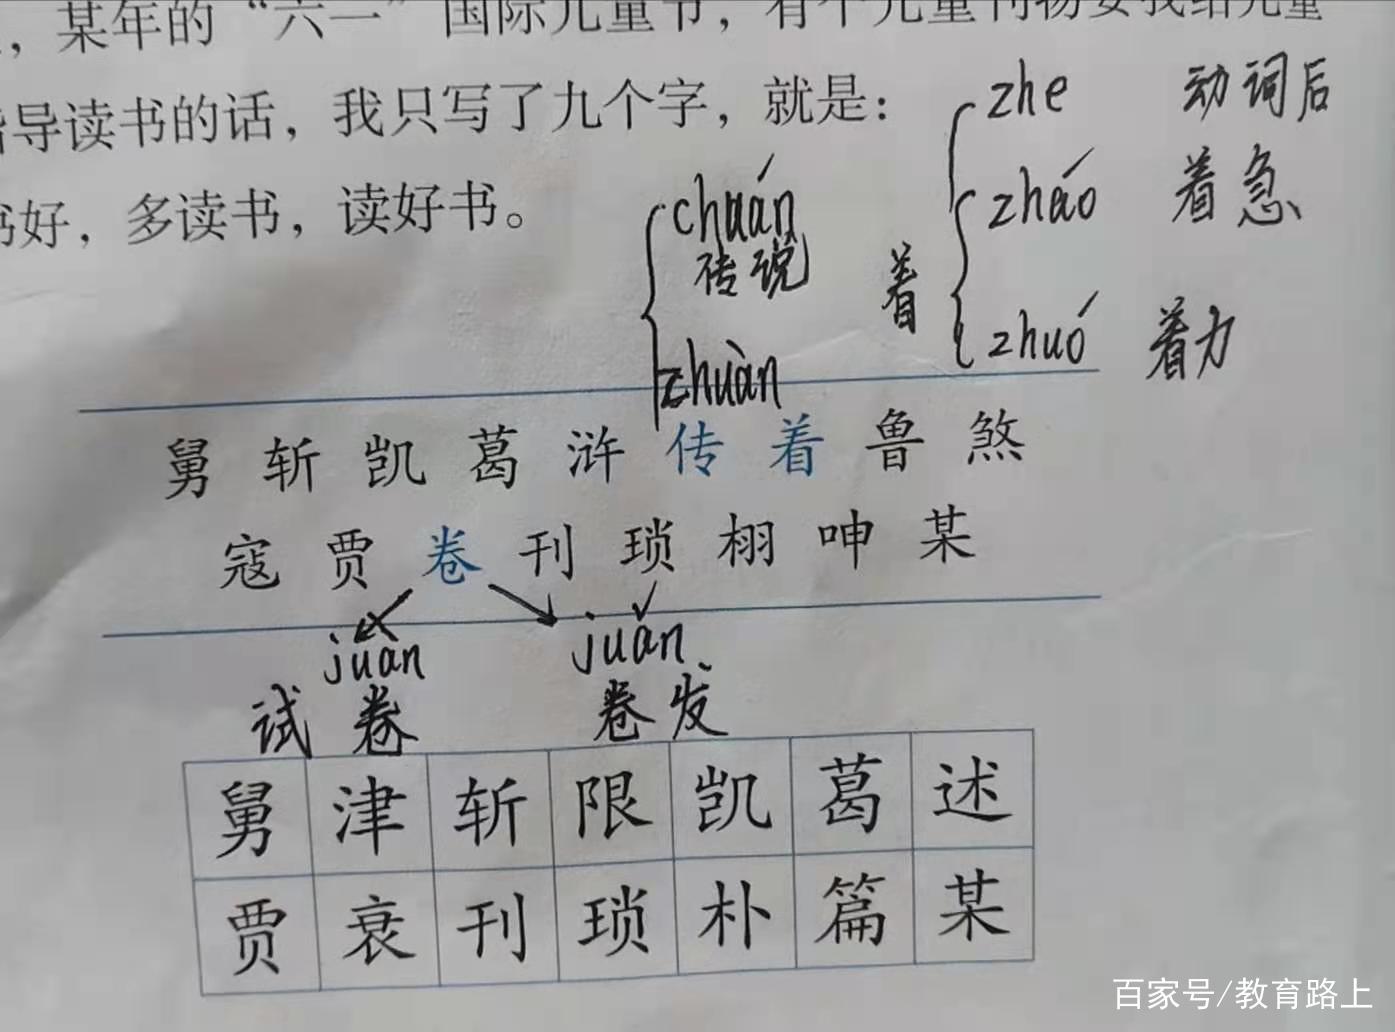 ，某年的“六一”国际儿童节，有个儿童刊物要我给儿童
指导读书的话，我只写了九个字，就是：
书好，多读书，读好书。
zhe 动词后
zháo 着急
chuán
传说
着
zhuó 着力
zhuàn
舅 斩 凯 葛 浒 传 着 鲁 煞
寇 贾 卷 刊 琐 栩 呻 某
juàn juǎn
试卷 卷发
舅 津 斩 限 凯 葛 述
贾 衰 刊 琐 朴 篇 某
百家号/教育路上